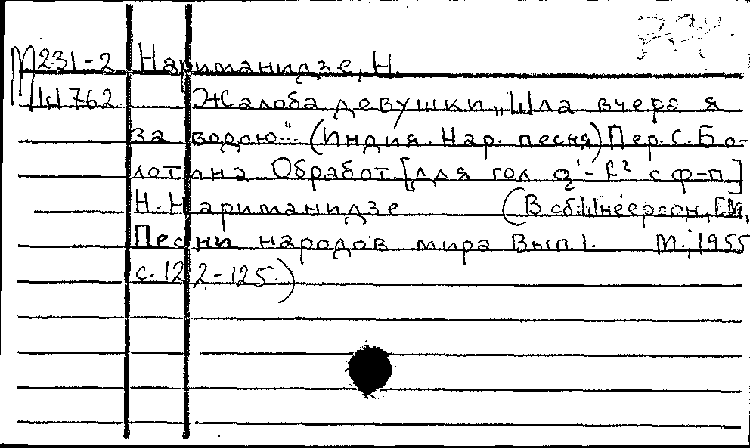 М231-2 Нариманидзе, Н.
Ш762 Жалоба девушки „Шла вчера я
за водою“ (Индия. Нар. песня) Пер. С. Бо-
лотина Обработ [для гол. с фп]
Н. Нариманидзе (В сб: Шнеерсон, Г.М,
Песни народов мира Вып 1. М., 1955
с. 122-125)